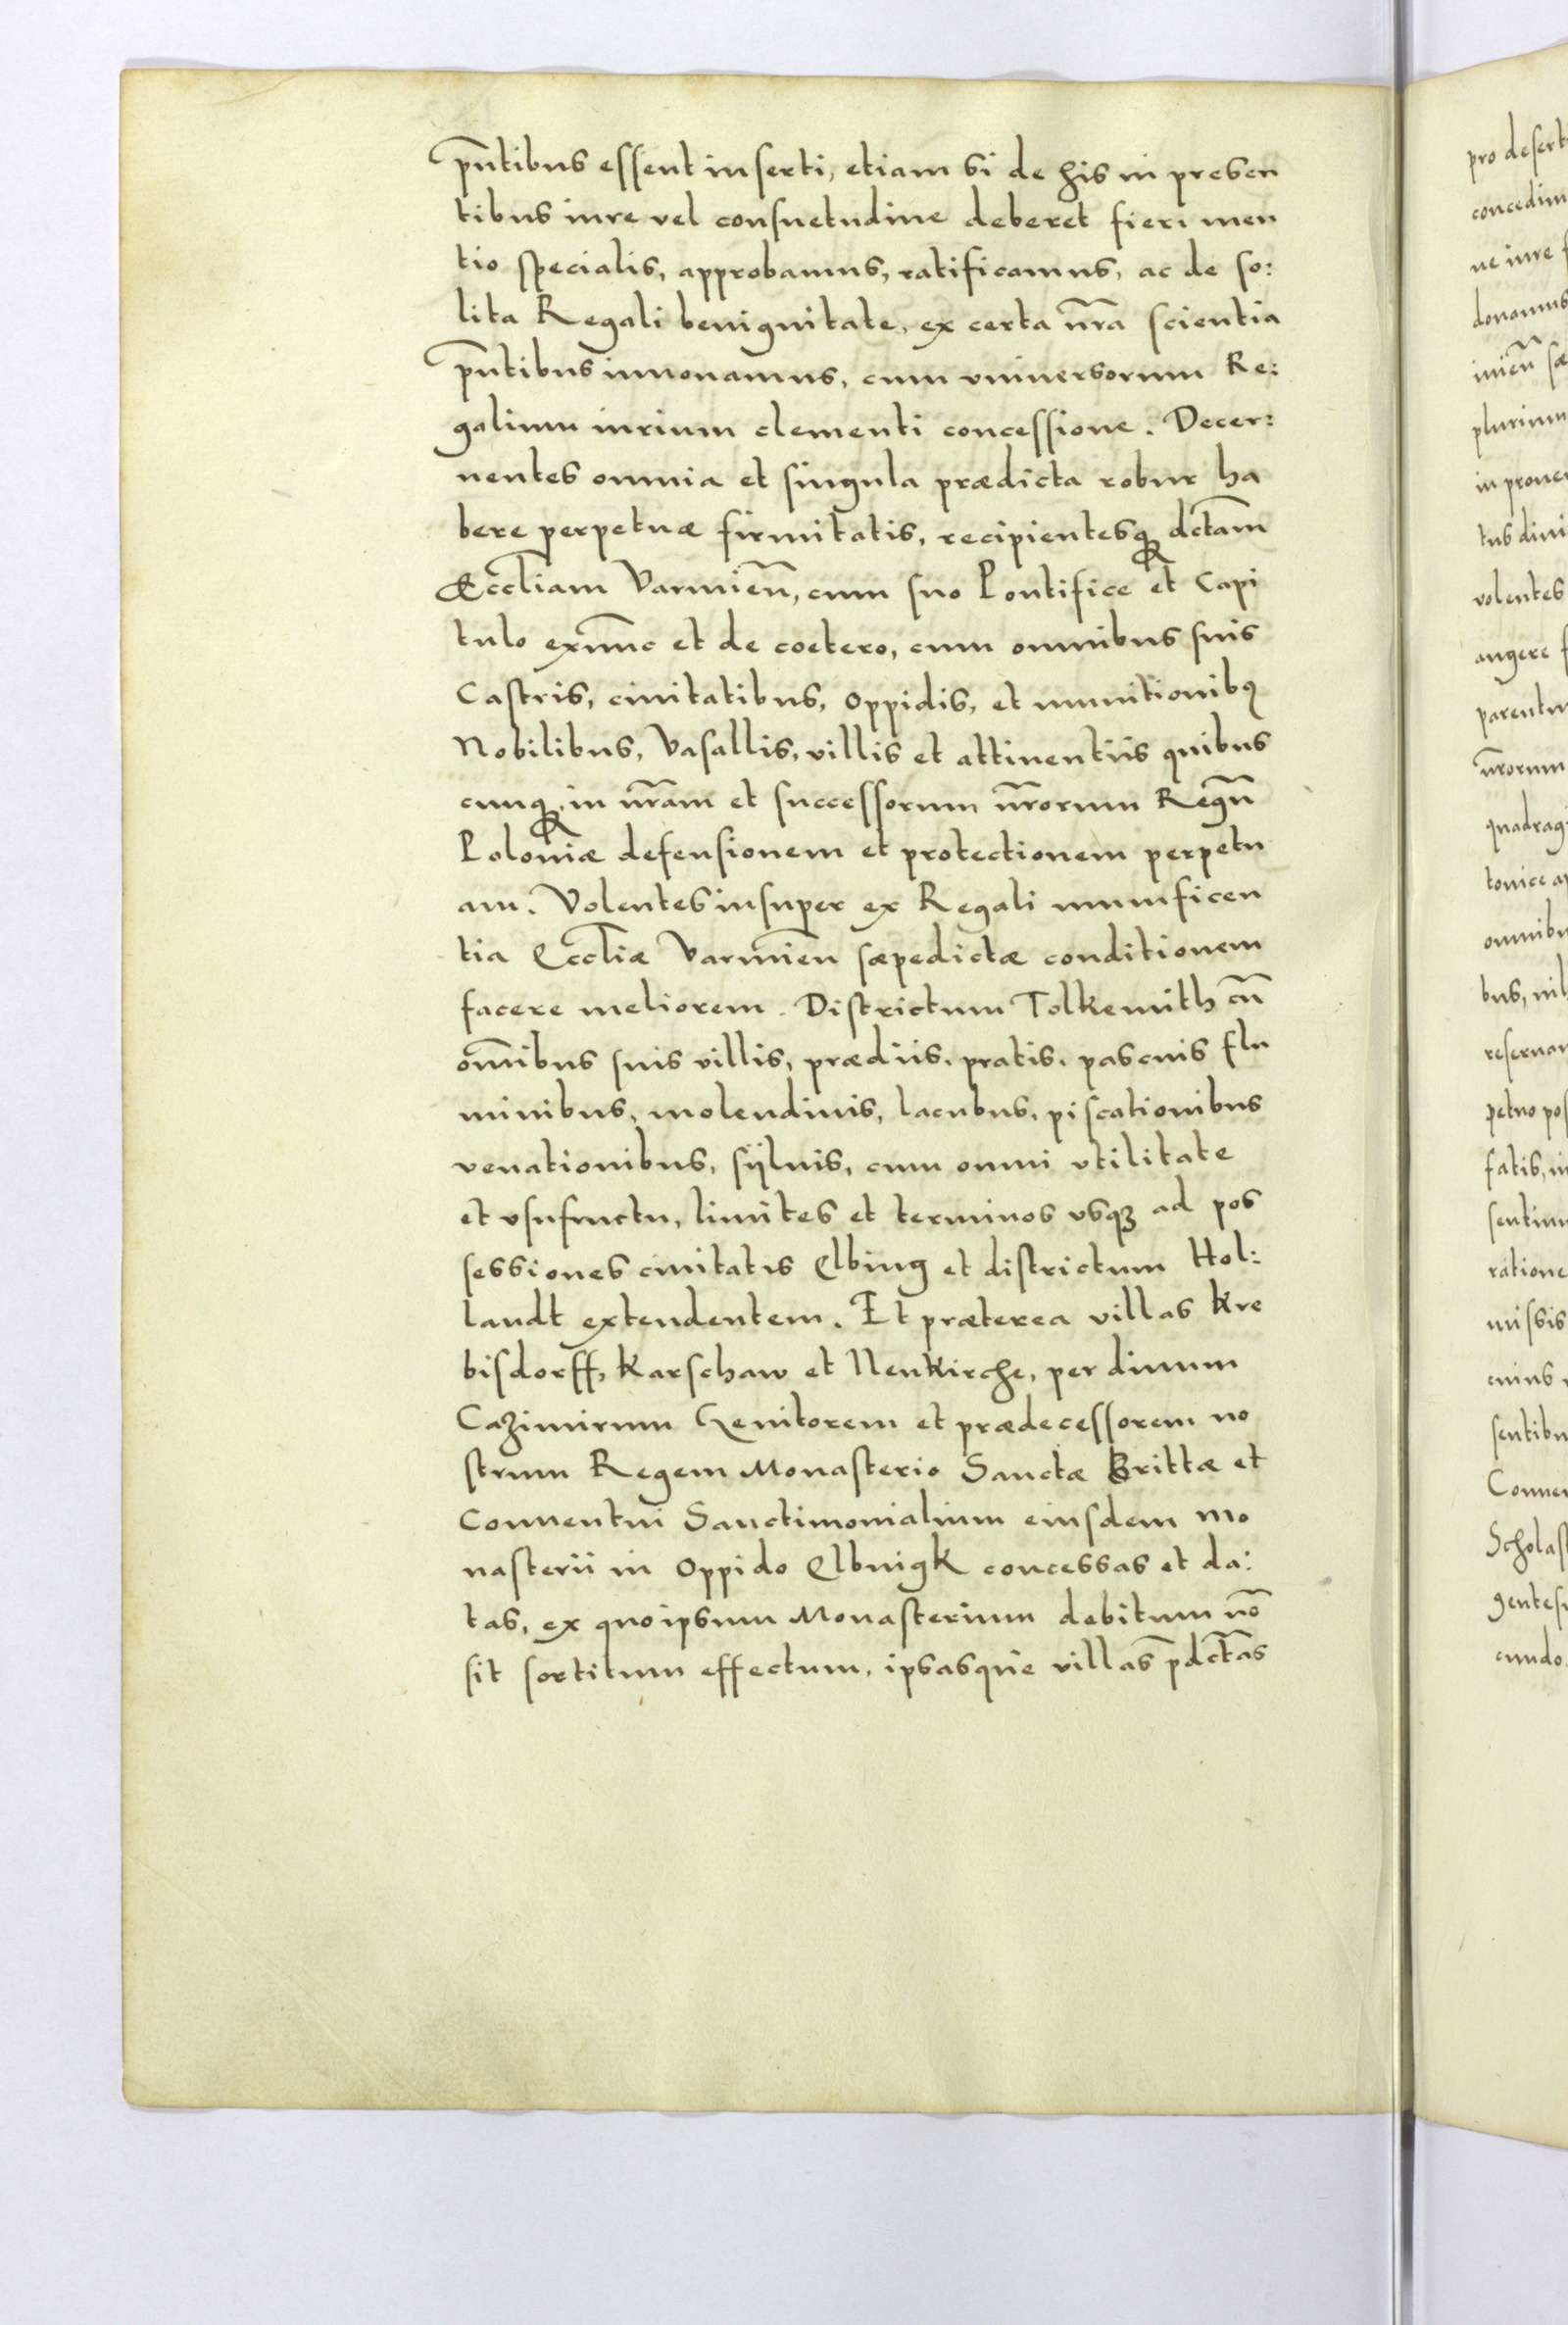 pñtibus essent inserti, etiam si de his in presen
tibus iure vel consuetudine deberet fieri men
tio specialis, approbamus, ratificamus, ac de so:
lita Regali benignitate, ex certa nr̃a scientia
pñtibus innouamus, cum vniuersorum Re:
galium iurium clementi concessione. Decer:
nentes omnia et singula prædicta robur ha
bere perpetuæ firmitatis, recipientesq; dctam̃
Æccl̃iam Varmieñ, cum suo Pontifice et Capi
tulo exnunc et de coetero, cum omnibus suis
Castris, ciuitatibus, oppidis, et munitionibꝰ
Nobilibus, Vasallis, villis et attinentiis quibus
cunq; in nr̃am et successorum nr̃orum Regũ
Poloniæ defensionem et protectionem perpetu
am. Volentes insuper ex Regali munificen
tia Eccl̃iæ Varmieñ sæpedictæ conditionem
facere meliorem. Districtum Tolkemith cũ
om̃ibus suis villis, prædiis, pratis, pascuis flu
minibus, molendinis, lacubus, piscationibus
venationibus, sÿluis, cum omni vtilitate
et vsufructu, limites et terminos vsqꝫ ad pos
sessiones ciuitatis Elbing et districtum Hol:
landt extendentem. Et præterea villas Kre
bisdorff, Karschaw et Neukirche, per diuum
Cazimirum Genitorem et prædecessorem no
strum Regem Monasterio Sanctæ Brittæ et
Conuentui Sanctimonialium eiusdem mo
nasterii in Oppido Elbingk concessas et da:
tas, ex quo ipsum Monasterium debitum nõ
sit sortitum effectum, ipsasque villas p̃dctas̃
pro desert
concedim
ne iure f
donamus
imieñ sæ
plurimu
in proue
tus diui
volentes
augere f
parentu
nr̃orum
quadrag
tonice ap
omnibu
bus, nil
reseruan
petuo pos
fatis, in
sentium
ratione
missis
cuius
sentibu
Conue
Scholas
gentesi
cundo.